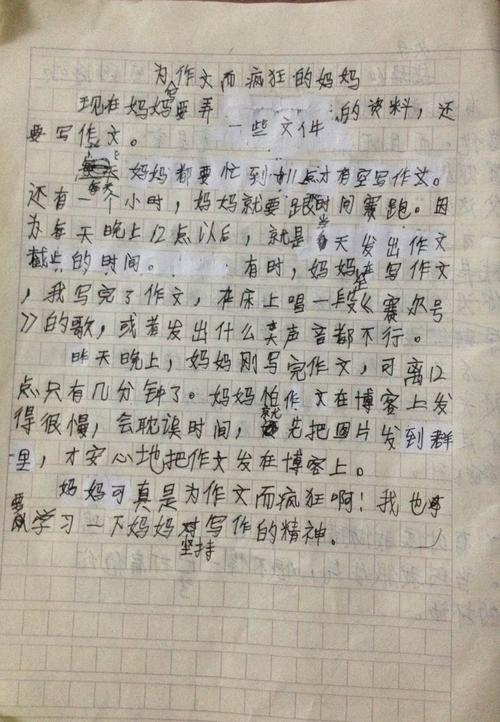 为作文而疯狂的妈妈
现在妈妈要弄 的资料，还
要写作文。 一些文件
每天 妈妈都要忙到11点才有空写作文。
还有一个小时，妈妈就要跟时间赛跑。因
为每天晚上12点以后，就是当天发出作文
截止的时间。 有时，妈妈在写作文
，我写完了作文，在床上唱一段《赛尔号
》的歌，或者发出什么声音都不行。
昨天晚上，妈妈刚写完作文，可离12
点只有几分钟了。妈妈怕作文在博客上发
得很慢，会耽误时间，就先把图片发到群
里，才安心地把作文发在博客上。
妈妈可真是为作文而疯狂啊！我也要
学习一下妈妈坚持写作的精神。